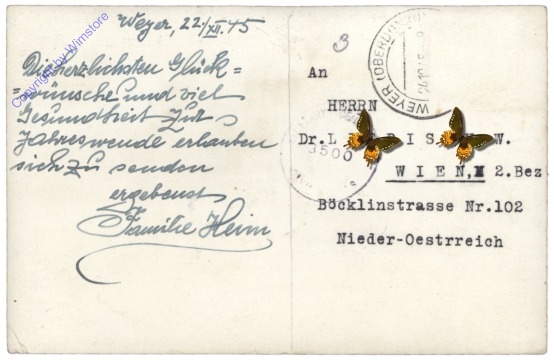 Weyer, 22./XII. 45
Die herzlichsten Glück=
wünsche und viel
Gesundheit zur
Jahreswende erlauben
sich zu senden
ergebenst
Familie Heim
Copyright by Wimstore
3
WEYER (OBERDONAU)
An
HERRN
Dr. L I S W.
3500
WIEN, 2.Bez
Böcklinstrasse Nr.102
Nieder-Oestrreich